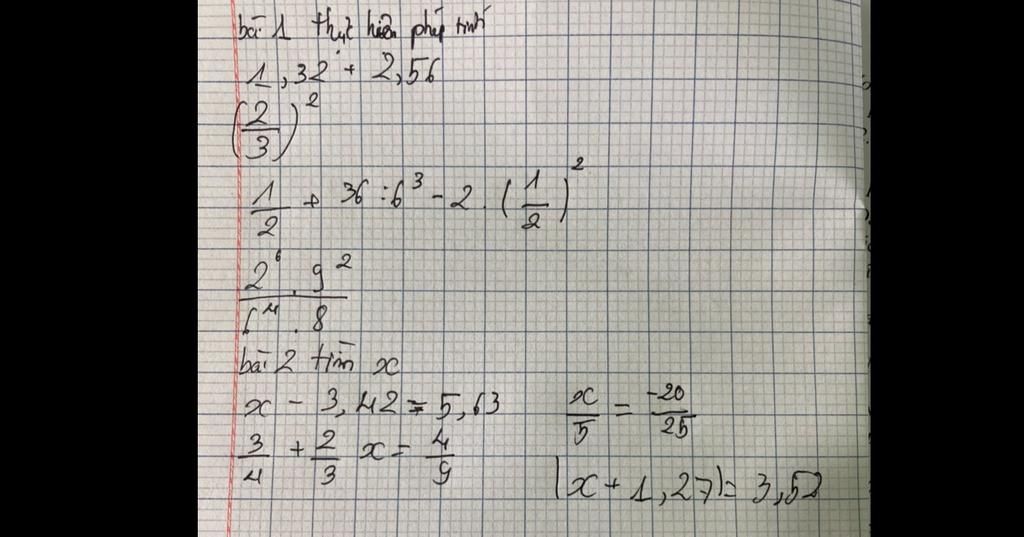 bài 1 thực hiện phép tính
1,32 + 2,56
(2/3)²
1/2 + 36 : 6³ - 2 . (1/2)²
2⁶ . 9² / 6⁴ . 8
bài 2 tìm x
x - 3,42 = 5,63
3/4 + 2/3 x = 4/9
x/5 = -20/25
|x + 1,27| = 3,52